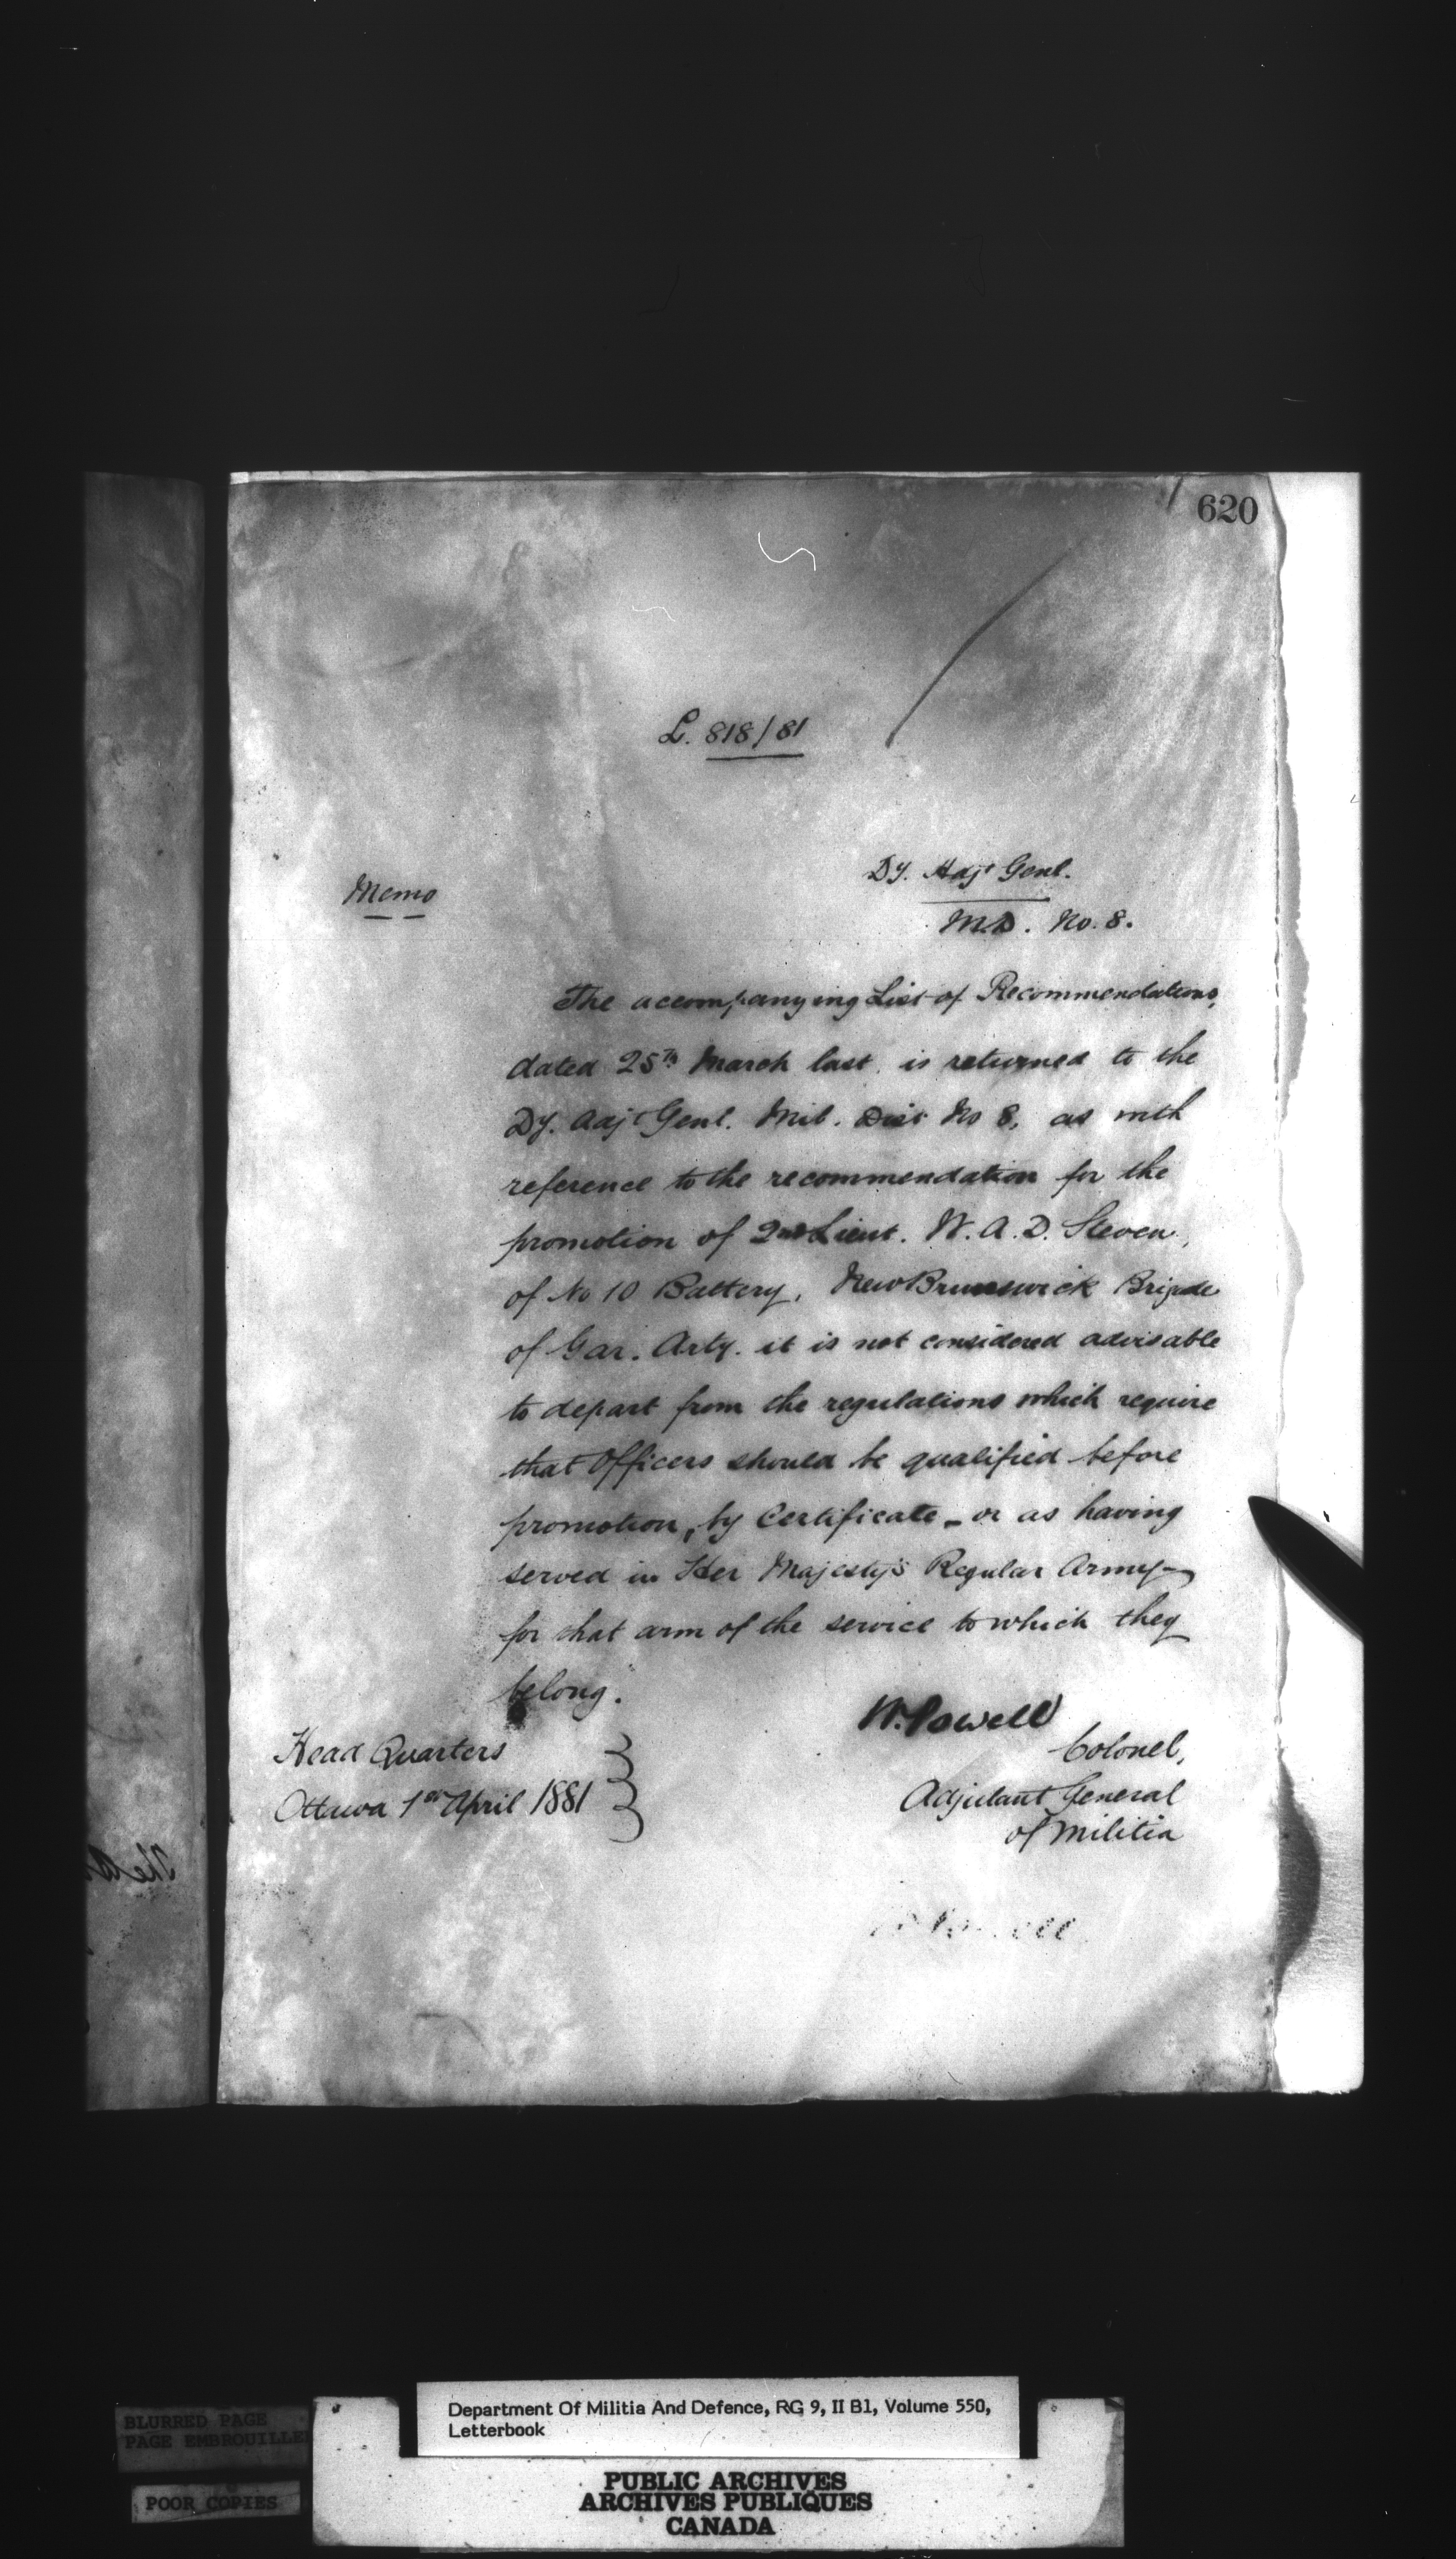 620
L. 818/81
Memo
Dy. Adjt Genl.
M.D. No. 8.
The accompanying List of Recommendations,
dated 25th March last, is returned to the
Dy. Adjt Genl. Mil. Dist No 8, as with
reference to the recommendation for the
promotion of 2nd Lieut. W. A. D. Steven,
of No 10 Battery, New Brunswick Brigade
of Gar. Arty. it is not considered advisable
to depart from the regulations which require
that Officers should be qualified before
promotion, by Certificate - or as having
served in Her Majesty's Regular Army -
for that arm of the service to which they
belong.
W. Powell
Colonel,
Adjutant General
of Militia
Head Quarters
Ottawa 1st April 1881
BLURRED PAGE
PAGE EMBROUILLEE
POOR COPIES
Department Of Militia And Defence, RG 9, II B1, Volume 550,
Letterbook
PUBLIC ARCHIVES
ARCHIVES PUBLIQUES
CANADA